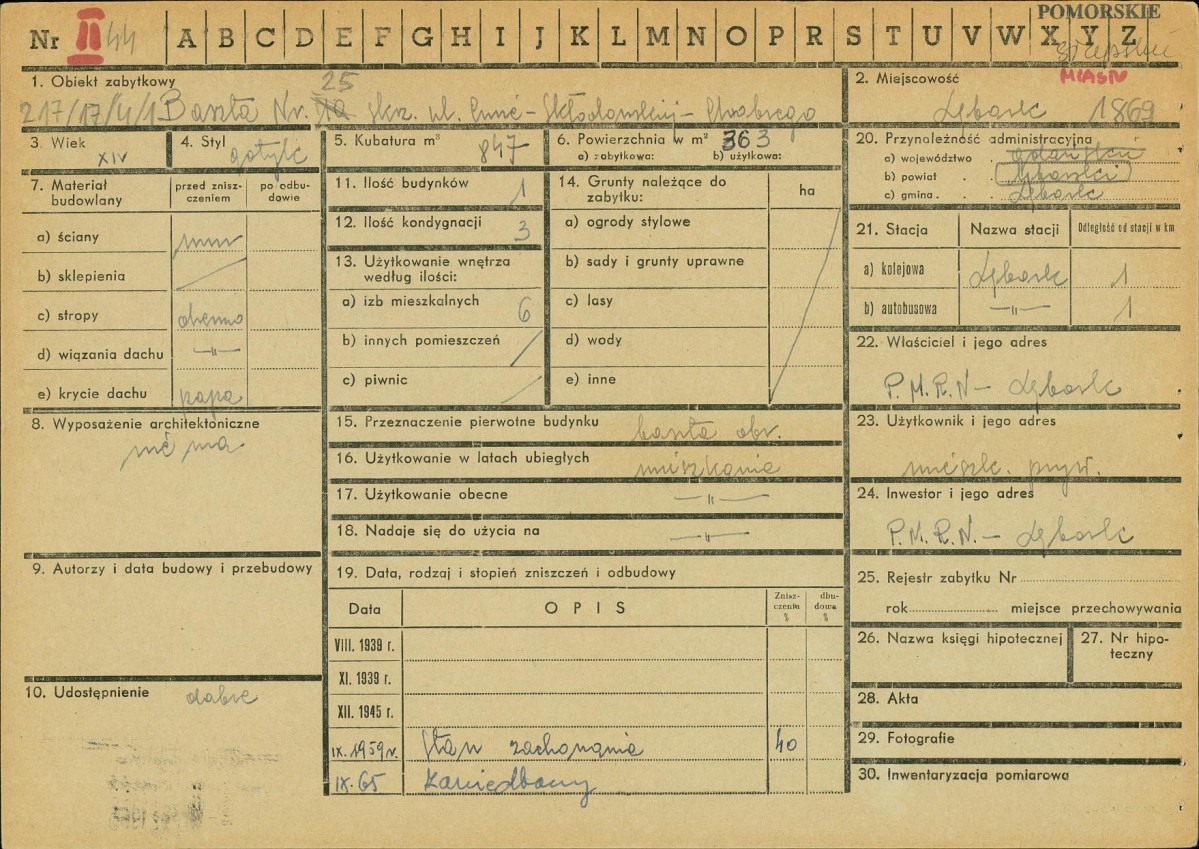 POMORSKIE
Nr II 44 A B C D E F G H I J K L M N O P R S T U V W X Y Z
słupskie
MIASTO
1. Obiekt zabytkowy
25
217/17/4/1 Baszta Nr. Skrz. ul. Curie-Skłodowskiej-
2. Miejscowość
Lębork 1869
3. Wiek
XIV
4. Styl
gotyk
5. Kubatura m³
847
6. Powierzchnia w m² 363
a) zabytkowa: b) użytkowa:
7. Materiał budowlany
przed znisz-
czeniem
po odbu-
dowie
a) ściany mur
b) sklepienia
c) stropy drewno
d) wiązania dachu —〃—
e) krycie dachu papa
8. Wyposażenie architektoniczne
nie ma
9. Autorzy i data budowy i przebudowy
10. Udostępnienie dobre
11. Ilość budynków 1
12. Ilość kondygnacji 3
13. Użytkowanie wnętrza
według ilości:
a) izb mieszkalnych 6
b) innych pomieszczeń
c) piwnic
14. Grunty należące do
zabytku:
ha
a) ogrody stylowe
b) sady i grunty uprawne
c) lasy
d) wody
e) inne
15. Przeznaczenie pierwotne budynku baszta obr.
16. Użytkowanie w latach ubiegłych mieszkania
17. Użytkowanie obecne —〃—
18. Nadaje się do użycia na —〃—
19. Data, rodzaj i stopień zniszczeń i odbudowy
Data
OPIS
Znisz-
czenia
%
dbu-
dowa
%
VIII. 1939 r.
XI. 1939 r.
XII. 1945 r.
IX. 1959 r. Stan zachowania 40
IX. 65 zaniedbany
20. Przynależność administracyjna
a) województwo . gdańskie
b) powiat . . lęborski
c) gmina . . . Lębork
21. Stacja
Nazwa stacji
Odległość od stacji w km
a) kolejowa Lębork 1
b) autobusowa —〃— 1
22. Właściciel i jego adres
P.M.R.N - Lębork
23. Użytkownik i jego adres
mieszk. pryw.
24. Inwestor i jego adres
P.M.R.N. - Lębork
25. Rejestr zabytku Nr
rok miejsce przechowywania
26. Nazwa księgi hipotecznej
27. Nr hipo-
teczny
28. Akta
29. Fotografie
30. Inwentaryzacja pomiarowa